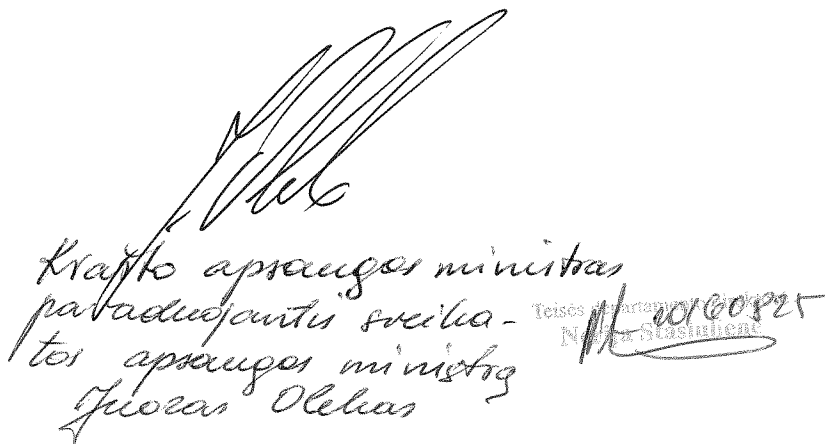 Krašto apsaugos ministras
pavaduojantis sveika-
tos apsaugos ministrą
Juozas Olekas
Teisės departamento
Stasiulienė
20160825